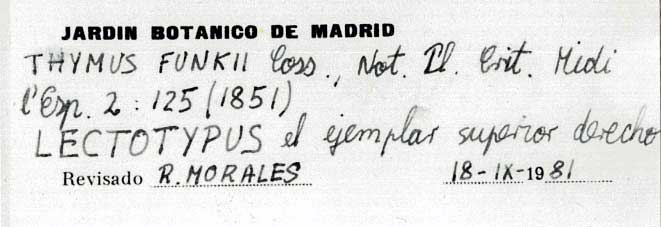 JARDIN BOTANICO DE MADRID
THYMUS FUNKII Coss., Not. Pl. Crit. Midi
l'Esp. 2 : 125 (1851)
LECTOTYPUS el ejemplar superior derecho
Revisado R. MORALES 18-IX-1981